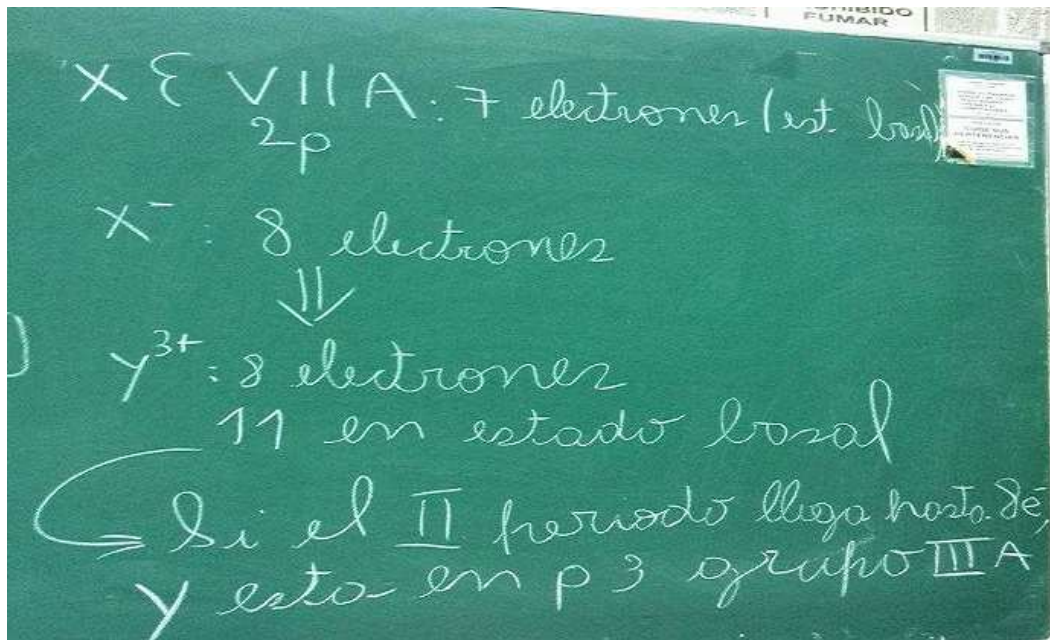 HIBIDO
FUMAR
X Ɛ VII A: 7 electrones (est. basal)
2p
X⁻ : 8 electrones
⇓
Y³⁺: 8 electrones
11 en estado basal
Si el II periodo llega hasta 8é,
Y esta en p 3 grupo III A